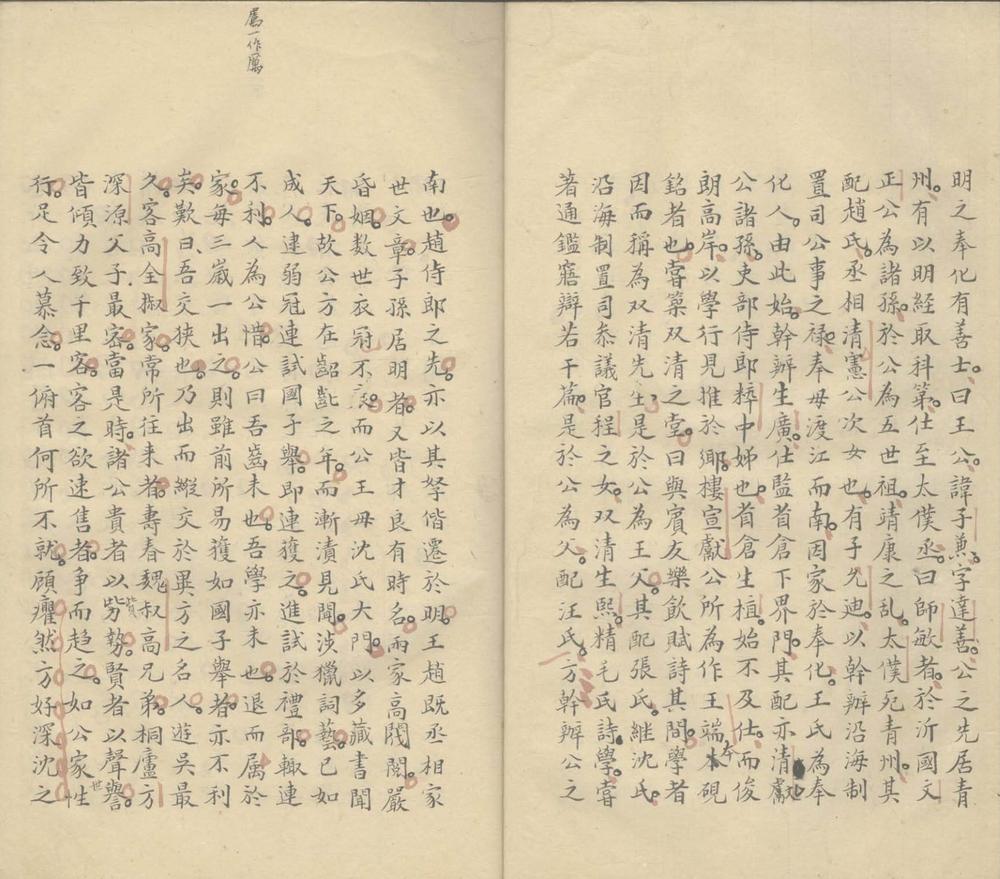 明之奉化有善士曰王公諱子兼字達善公之先居青
州有以明經取科第仕至太僕丞曰師敏者於沂國文
正公為諸孫於公為五世祖靖康之亂太僕死青州其
配趙氏丞相清憲公次女也有子允迪以幹辦沿海制
置司公事之祿奉母渡江而南因家於奉化王氏為奉
化人由此始幹辦生廣仕監首倉下界門其配亦清獻
公諸孫吏部侍郎粹中姊也首倉生植始不及仕而俊
朗高岸以學行見推於鄉樓宣獻公所為作王端本硯
銘者也嘗築双清之堂曰與賓友樂飲賦詩其間學者
因而稱為双清先生是於公為王父其配張氏継沈氏
沿海制置司叅議官程之女双清生熙精毛氏詩學嘗
著通鑑寤辯若干篇是於公為父配汪氏方幹辦公之
南也趙侍郎之先亦以其孥偕遷於明王趙既丞相家
世文章子孫居明者又皆才良有時名兩家高閥閱嚴
昏姻数世衣冠不而公王母沈氏大門以多藏書聞
天下故公方在齠齔之年而漸漬見聞涉獵詞藝已如
成人逮弱冠連試國子舉即連獲之進試於禮部輒連
不利人為公惜公曰吾齒未也吾學亦未也退而厲於
家每三歲一出之則雖前所易獲如國子舉者亦不利
矣歎曰吾交狹也乃出而縱交於異方之名人遊吳最
久客高全椒家常所往来者壽春魏叔高兄弟桐廬方
深源父子最客當是時諸公貴者以勢賢者以聲譽
皆傾力致千里客客之欲速售者争而趋之如公家性
行足令人慕念一俯首何所不就顧癯然方好深沈之
厲一作厲
貲
世
本